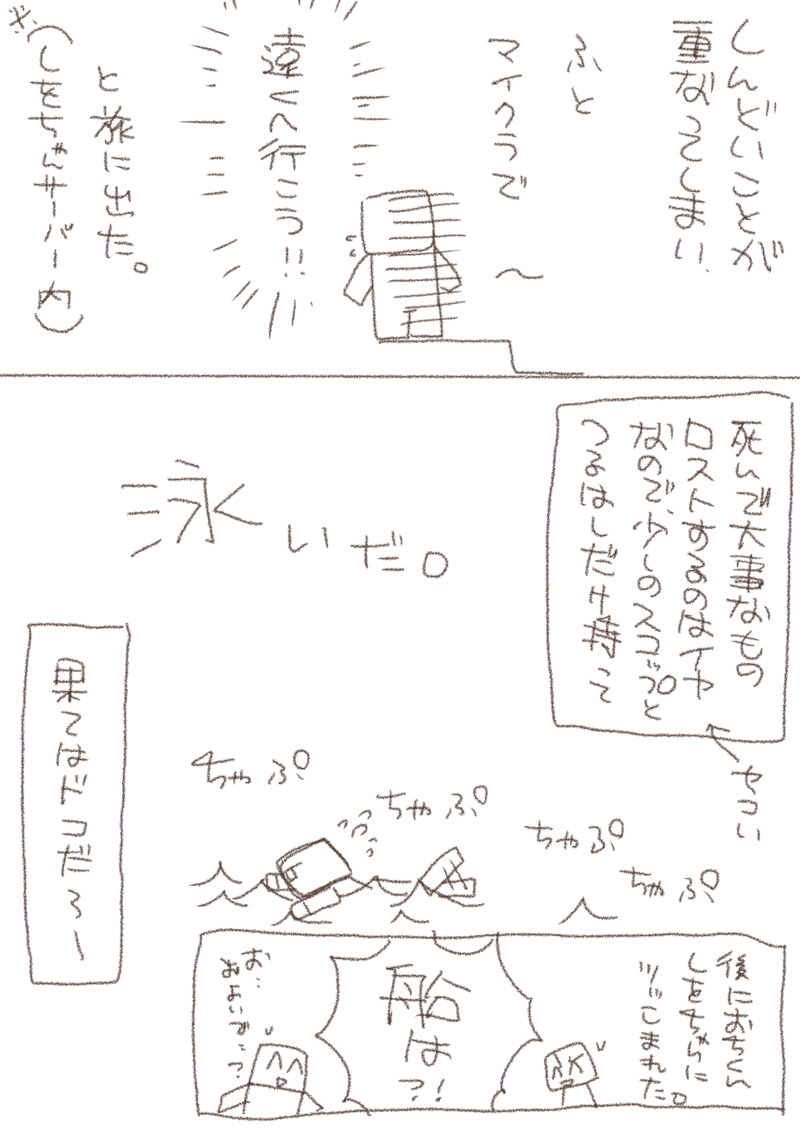 しんどいことが
重なってしまい、
ふと
マイクラで
〜
遠くへ行こう!!
と旅に出た。
※(しをちゃんサーバー内)
死んで大事なもの
ロストするのはイヤ
なので、少しのスコップと
つるはしだけ持って
セコい
泳いだ。
ちゃぷ
ちゃぷ
ちゃぷ
ちゃぷ
果てはドコだろー
後におちくん
しをちゃんに
ツッこまれた。
船は?!
お…
およいで…?